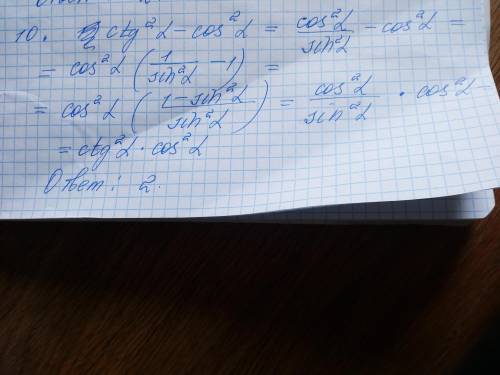 10. ctg²α - cos²α = cos²α/sin²α - cos²α =
= cos²α (1/sin²α - 1) =
= cos²α (1-sin²α/sin²α) = cos²α/sin²α · cos²α =
= ctg²α · cos²α
Ответ: 2.